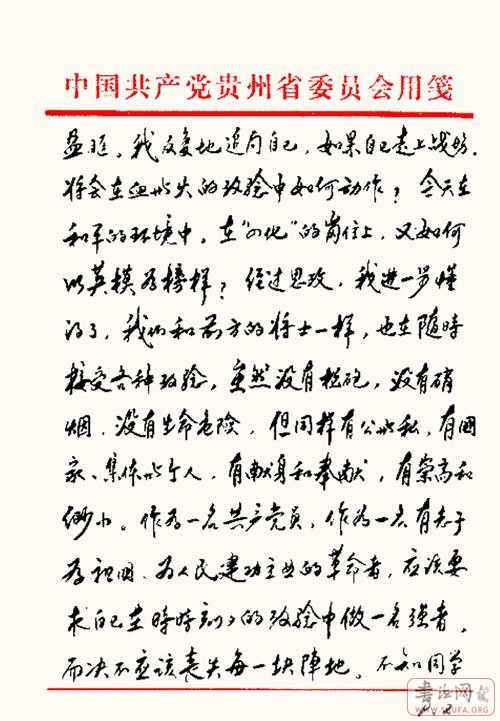 中国共产党贵州省委员会用笺
盈眶。我反复地追问自己,如果自己走上战场,
将会在血与火的攷验中如何动作?今天在
和平的环境中,在"四化"的岗位上,又如何
以英模为榜样?经过思攷,我进一步懂
得了,我们和前方的将士一样,也在随時
接受各种攷验,虽然没有枪砲,没有硝
烟,没有生命危险,但同样有公与私,有國
家、集体与个人,有献身和奉献,有崇高和
渺小。作为一名共产党员,作为一名有志于
为祖国、为人民建功立业的革命者,应该要
求自己在時時刻刻的攷验中做一名强者,
而决不应该丧失每一块陣地。不知同学